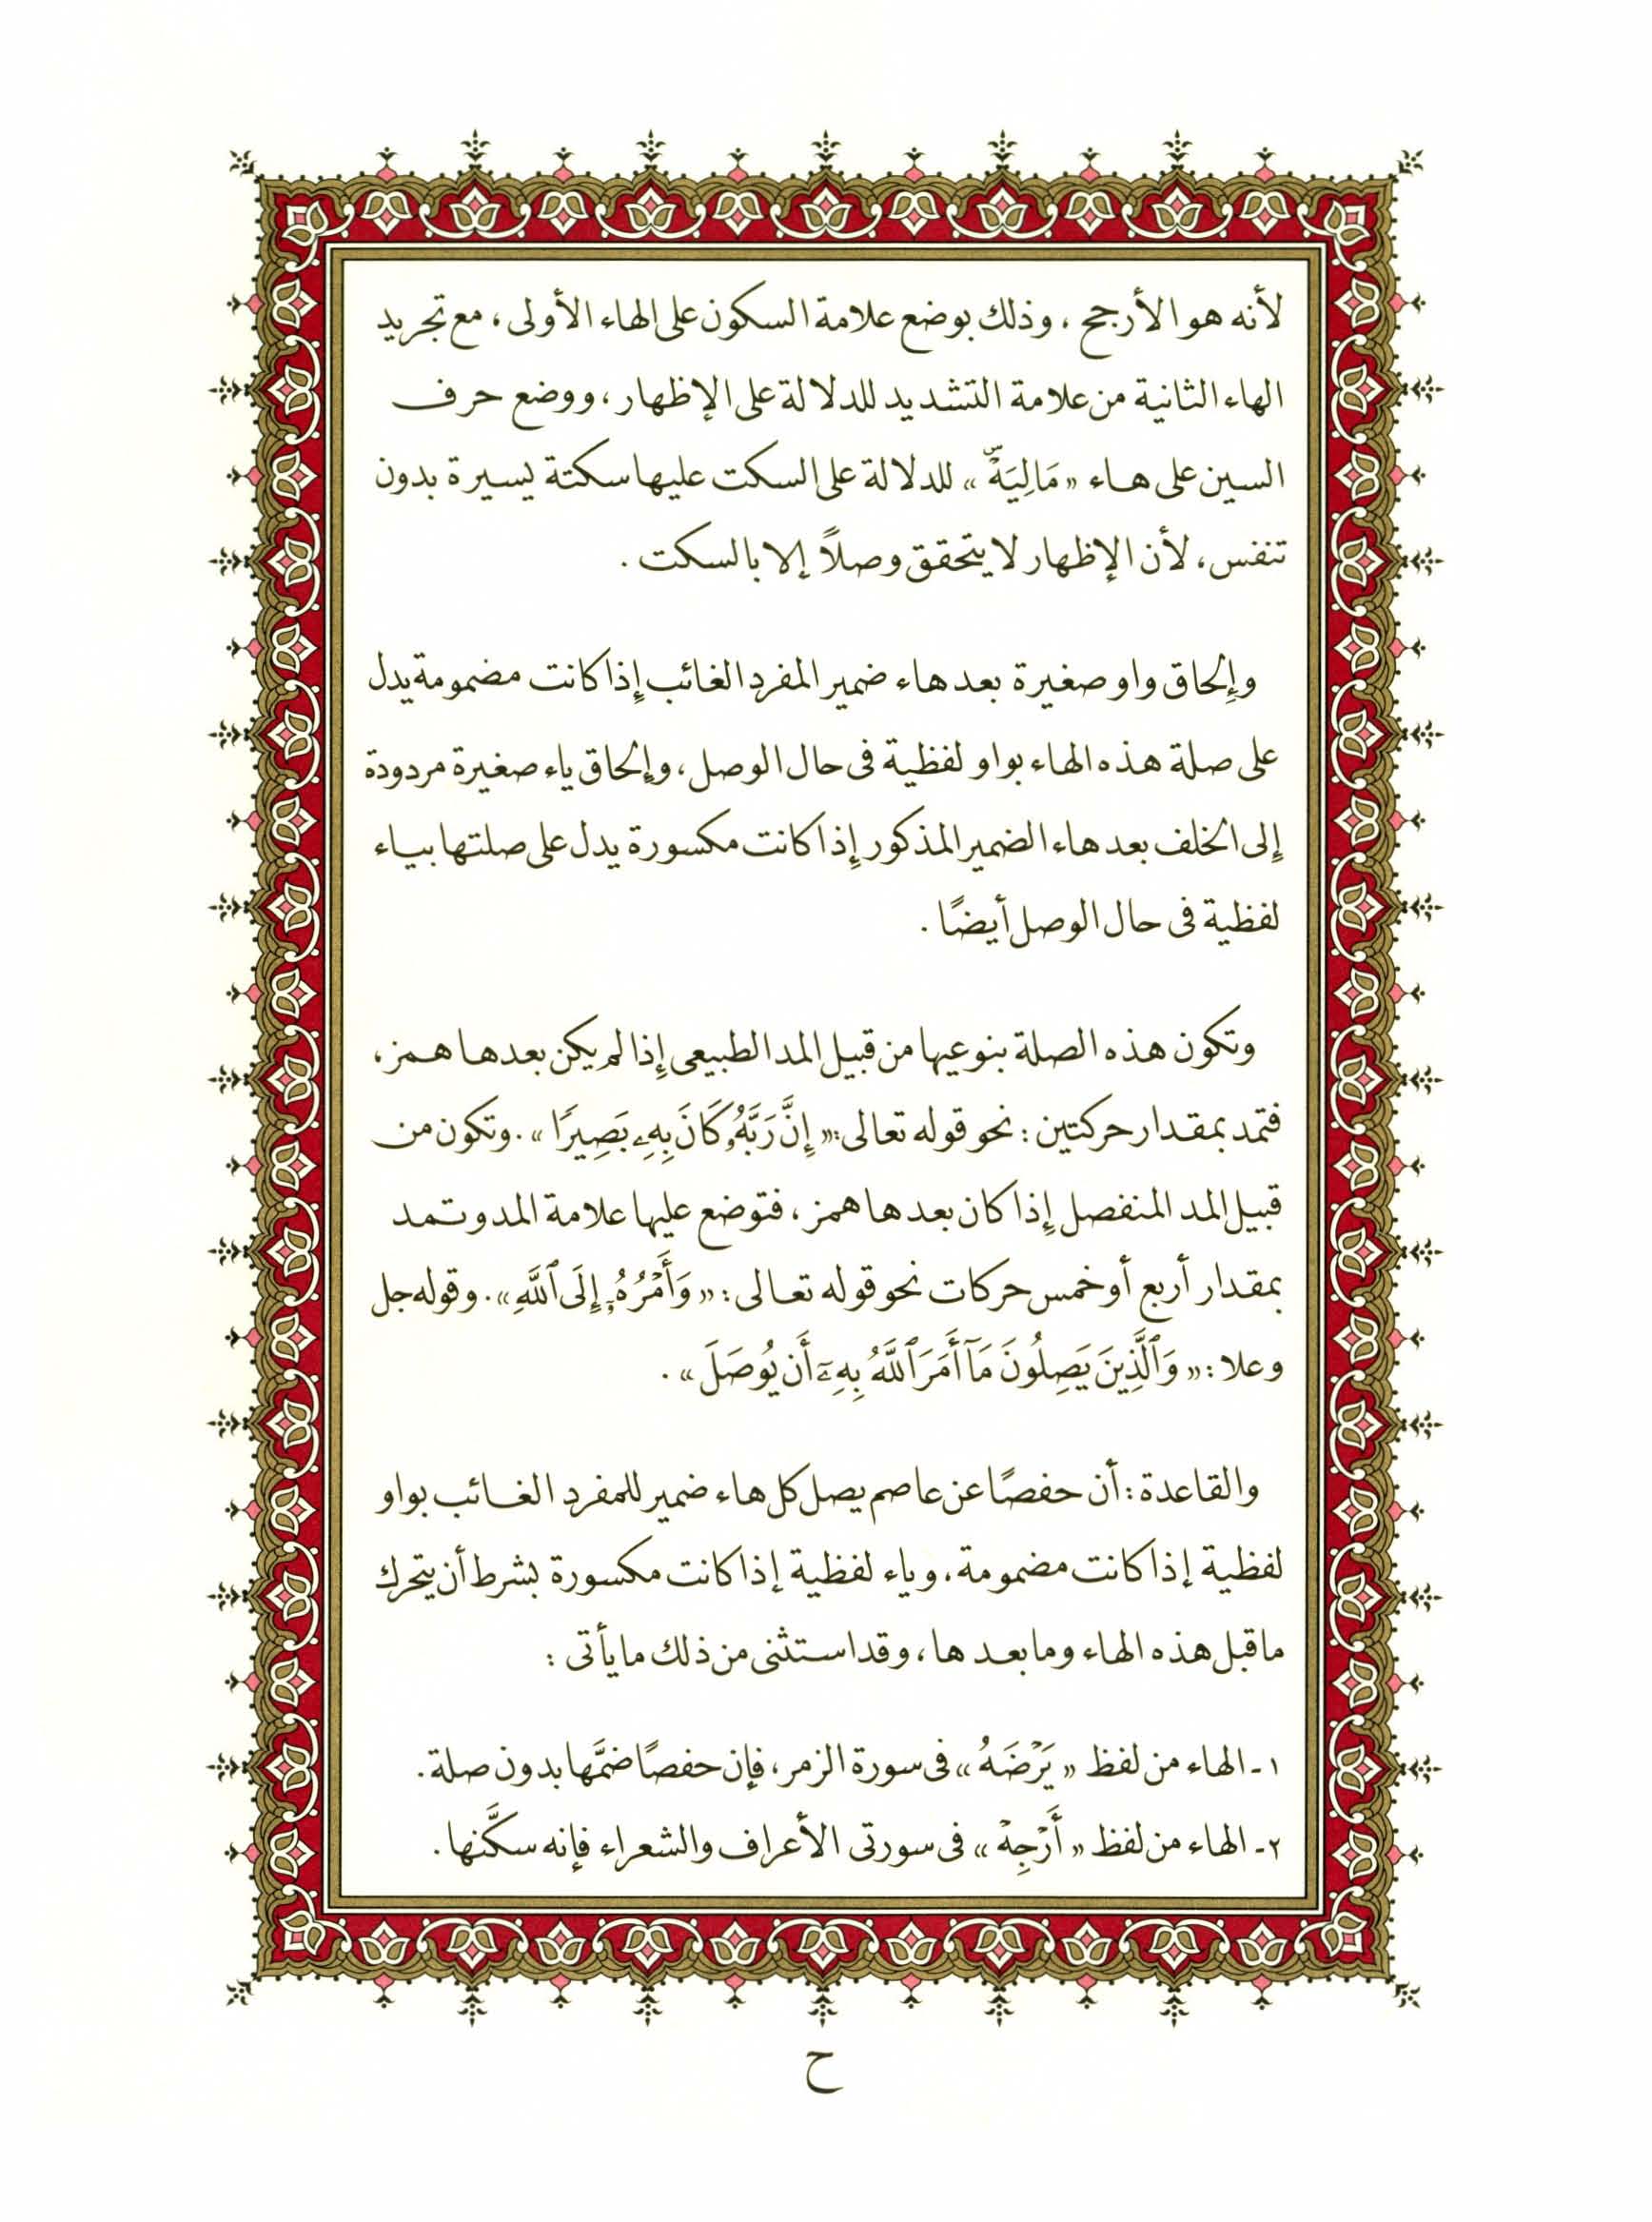 لأنه هو الأرجح ، وذلك بوضع علامة السكون على الهاء الأولى ، مع تجريد
الهاء الثانية من علامة التشديد للدلالة على الإظهار ، ووضع حرف
السين على هاء « مَالِيَهْۜ » للدلالة على السكت عليها سكتة يسيرة بدون
تنفس ، لأن الإظهار لا يتحقق وصلاً إلا بالسكت .
وإلحاق واو صغيرة بعد هاء ضمير المفرد الغائب إذا كانت مضمومة يدل
على صلة هذه الهاء بواو لفظية فى حال الوصل ، وإلحاق ياء صغيرة مردودة
إلى الخلف بعد هاء الضمير المذكور إذا كانت مكسورة يدل على صلتها بياء
لفظية فى حال الوصل أيضًا .
وتكون هذه الصلة بنوعيها من قبيل المد الطبيعى إذا لم يكن بعدها همز ،
فتمد بمقدار حركتين : نحو قوله تعالى : « إِنَّ رَبَّهُۥ كَانَ بِهِۦ بَصِيرًا » . وتكون من
قبيل المد المنفصل إذا كان بعدها همز ، فتوضع عليها علامة المد وتمد
بمقدار أربع أو خمس حركات نحو قوله تعالى : « وَأَمۡرُهُۥٓ إِلَى ٱللَّهِ » . وقوله جل
وعلا : « وَٱلَّذِينَ يَصِلُونَ مَآ أَمَرَ ٱللَّهُ بِهِۦٓ أَن يُوصَلَ » .
والقاعدة : أن حفصًا عن عاصم يصل كل هاء ضمير للمفرد الغائب بواو
لفظية إذا كانت مضمومة ، وياء لفظية إذا كانت مكسورة بشرط أن يتحرك
ما قبل هذه الهاء وما بعدها ، وقد استثنى من ذلك ما يأتى :
١ - الهاء من لفظ « يَرۡضَهُ » فى سورة الزمر ، فإن حفصًا ضمَّها بدون صلة .
٢ - الهاء من لفظ « أَرۡجِهۡ » فى سورتى الأعراف والشعراء فإنه سكَّنها .
ح